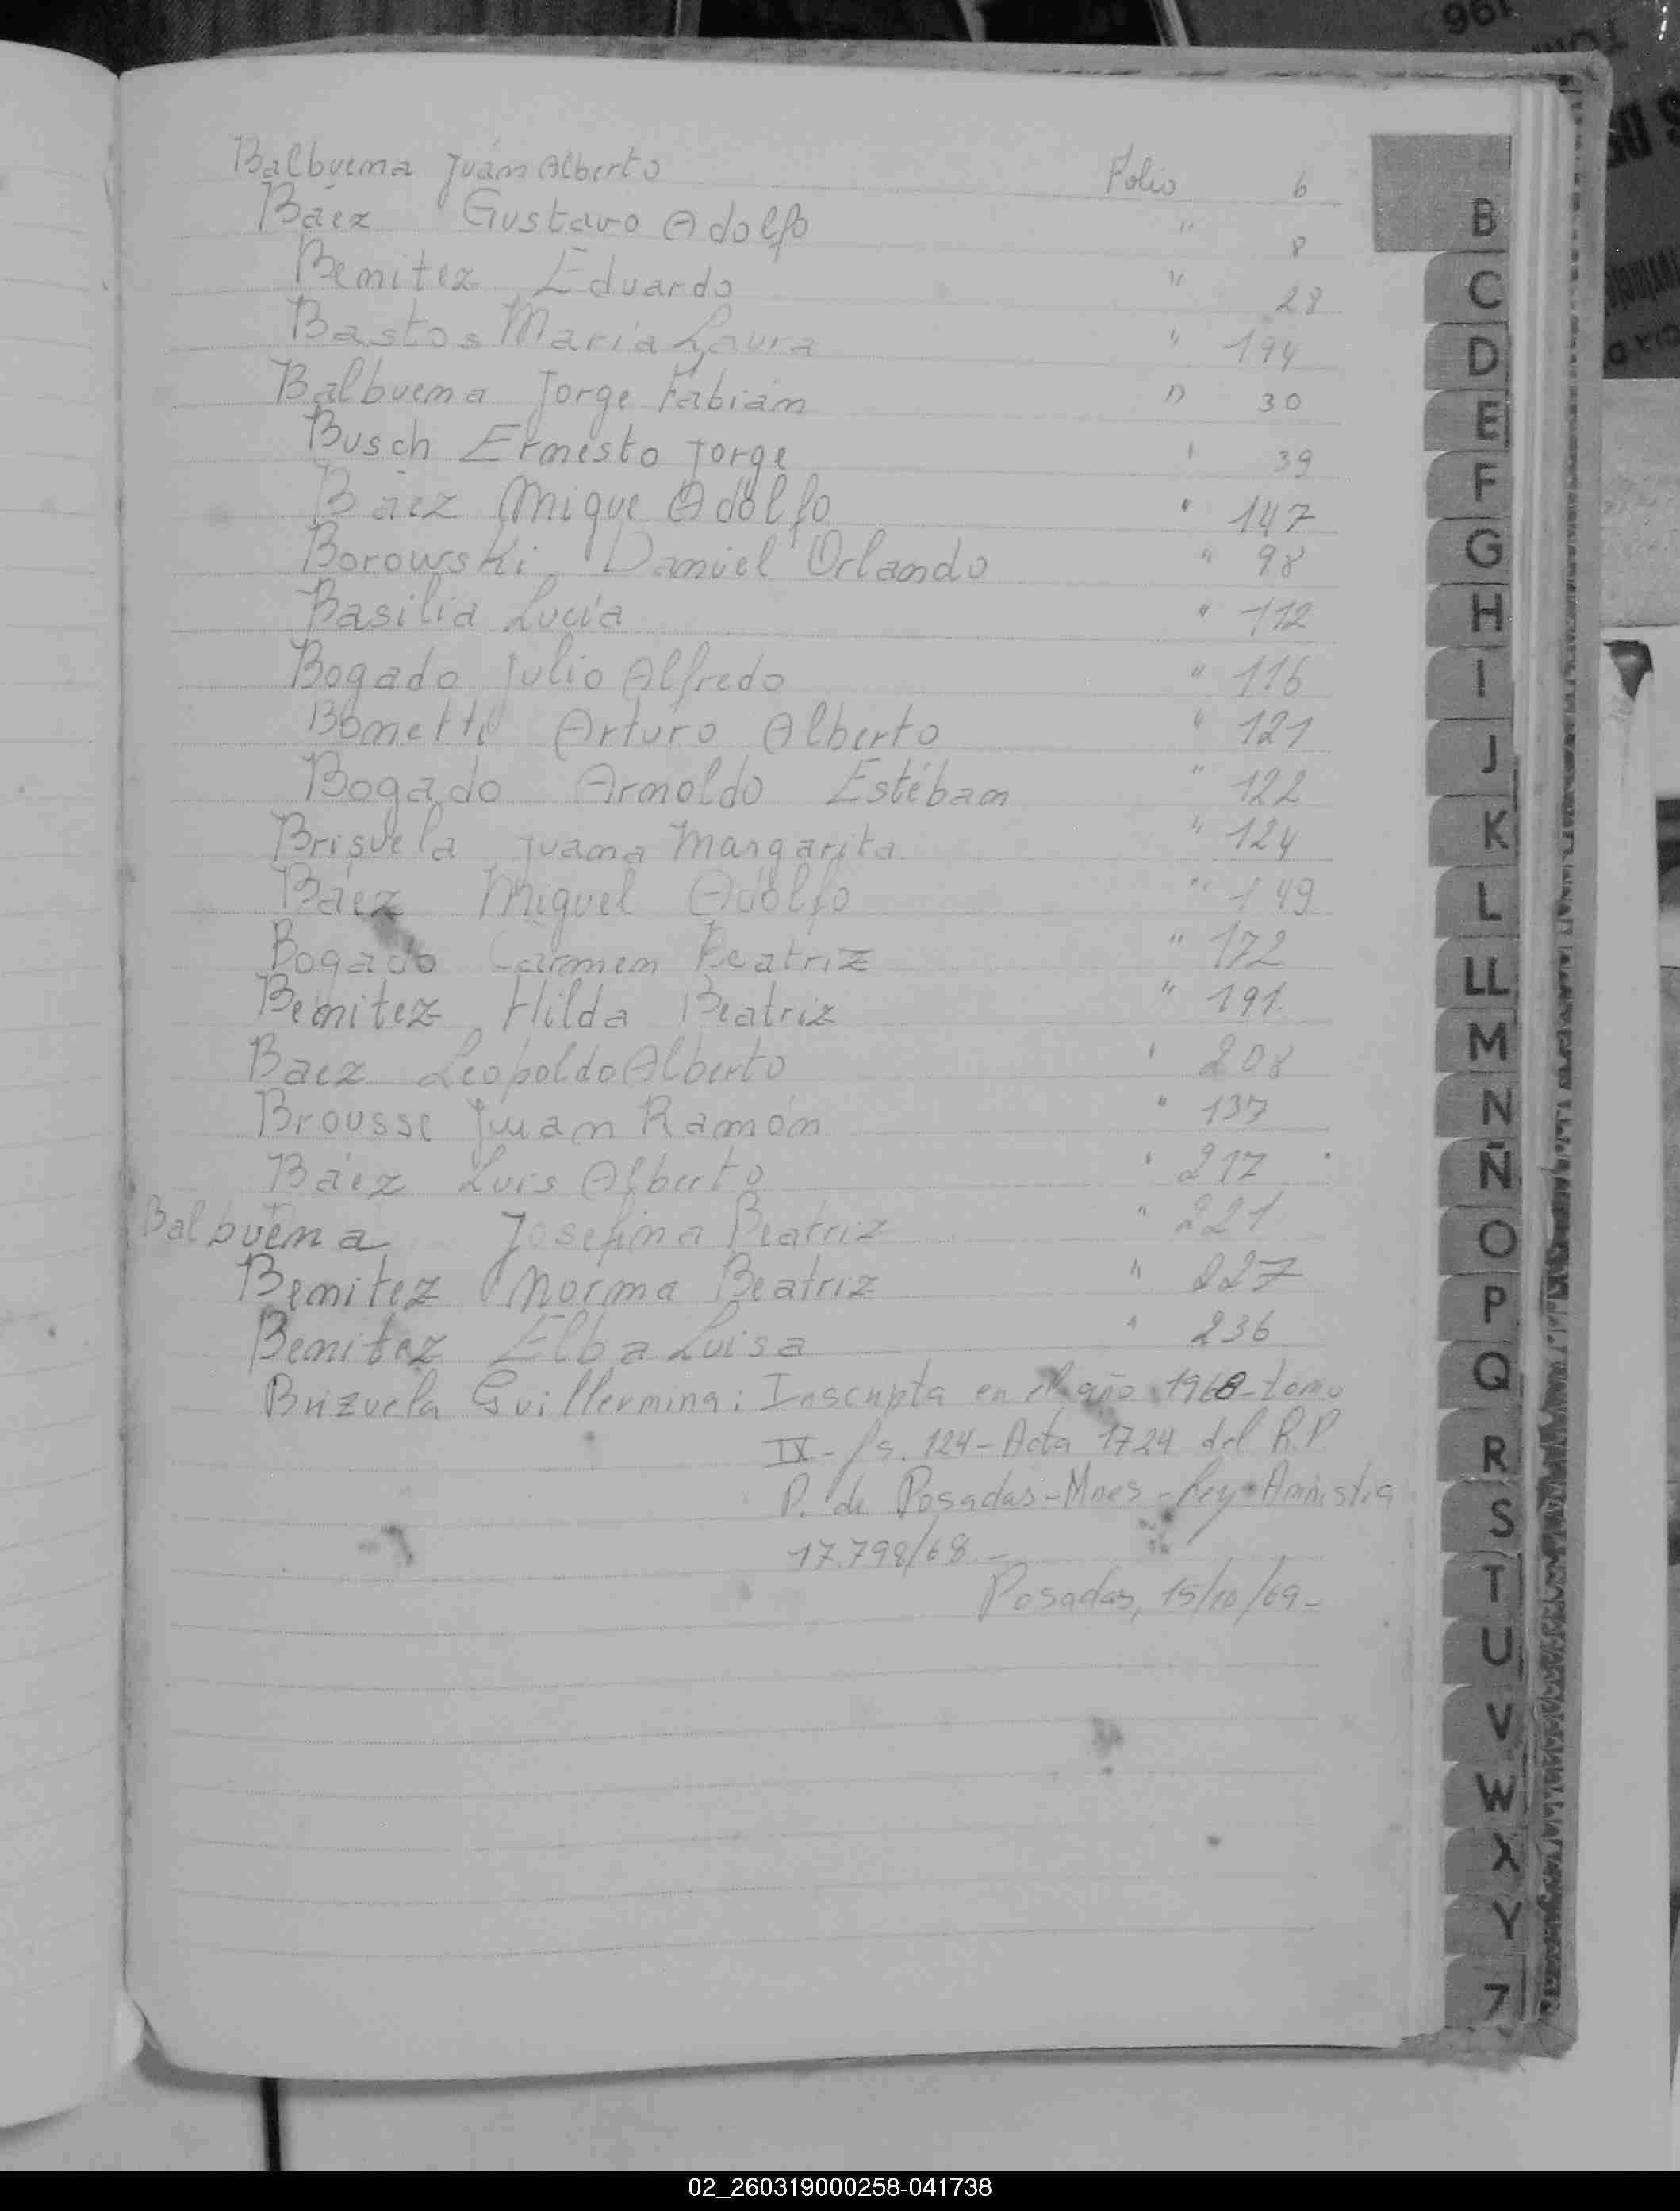 Balbuena Juan Alberto Folio 6
Báez Gustavo Adolfo " 8
Benitez Eduardo " 28
Bastos María Laura " 194
Balbuena Jorge Fabián " 30
Busch Ernesto Jorge " 39
Báez Migue Adolfo " 147
Borowski Daniel Orlando " 98
Basilia Lucía " 112
Bogado Julio Alfredo " 116
Bonetti Arturo Alberto " 121
Bogado Arnoldo Estéban " 122
Brisuela Juana Margarita " 124
Báez Miguel Adolfo " 149
Bogado Carmen Beatriz " 172
Benitez Hilda Beatriz " 191.
Baez Leopoldo Alberto " 208
Brousse Juan Ramón " 137
Báez Luis Alberto " 217
Balbuena Josefina Beatriz " 221
Benitez Norma Beatriz " 227
Benitez Elba Luisa " 236
Brizuela Guillermina: Inscripta en el año 1968-tomo
IX- fs. 124- Acta 1724 del R.P
P. de Posadas-Mnes - Ley Amnistia
17.798/68.-
Posadas, 15/10/69-
B
C
D
E
F
G
H
I
J
K
L
LL
M
N
Ñ
O
P
Q
R
S
T
U
V
W
X
Y
Z
196
02_260319000258-041738